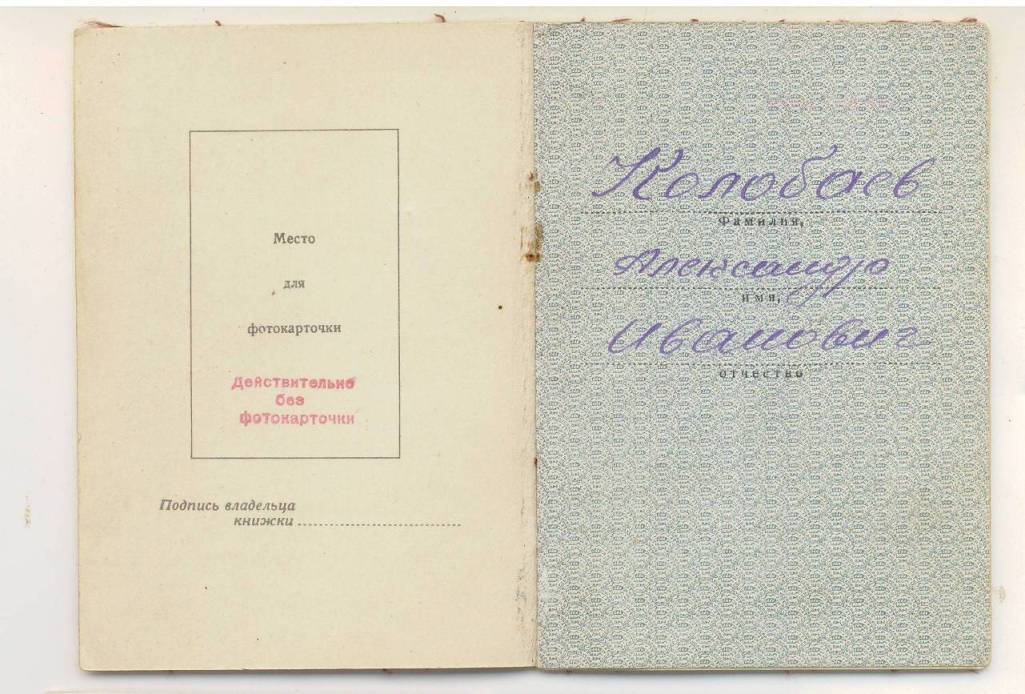 Место
для
фотокарточки
Действительно
без
фотокарточки
Подпись владельца
книжки
Колобаев
Фамилия,
Александр
имя,
Иванович
отчество